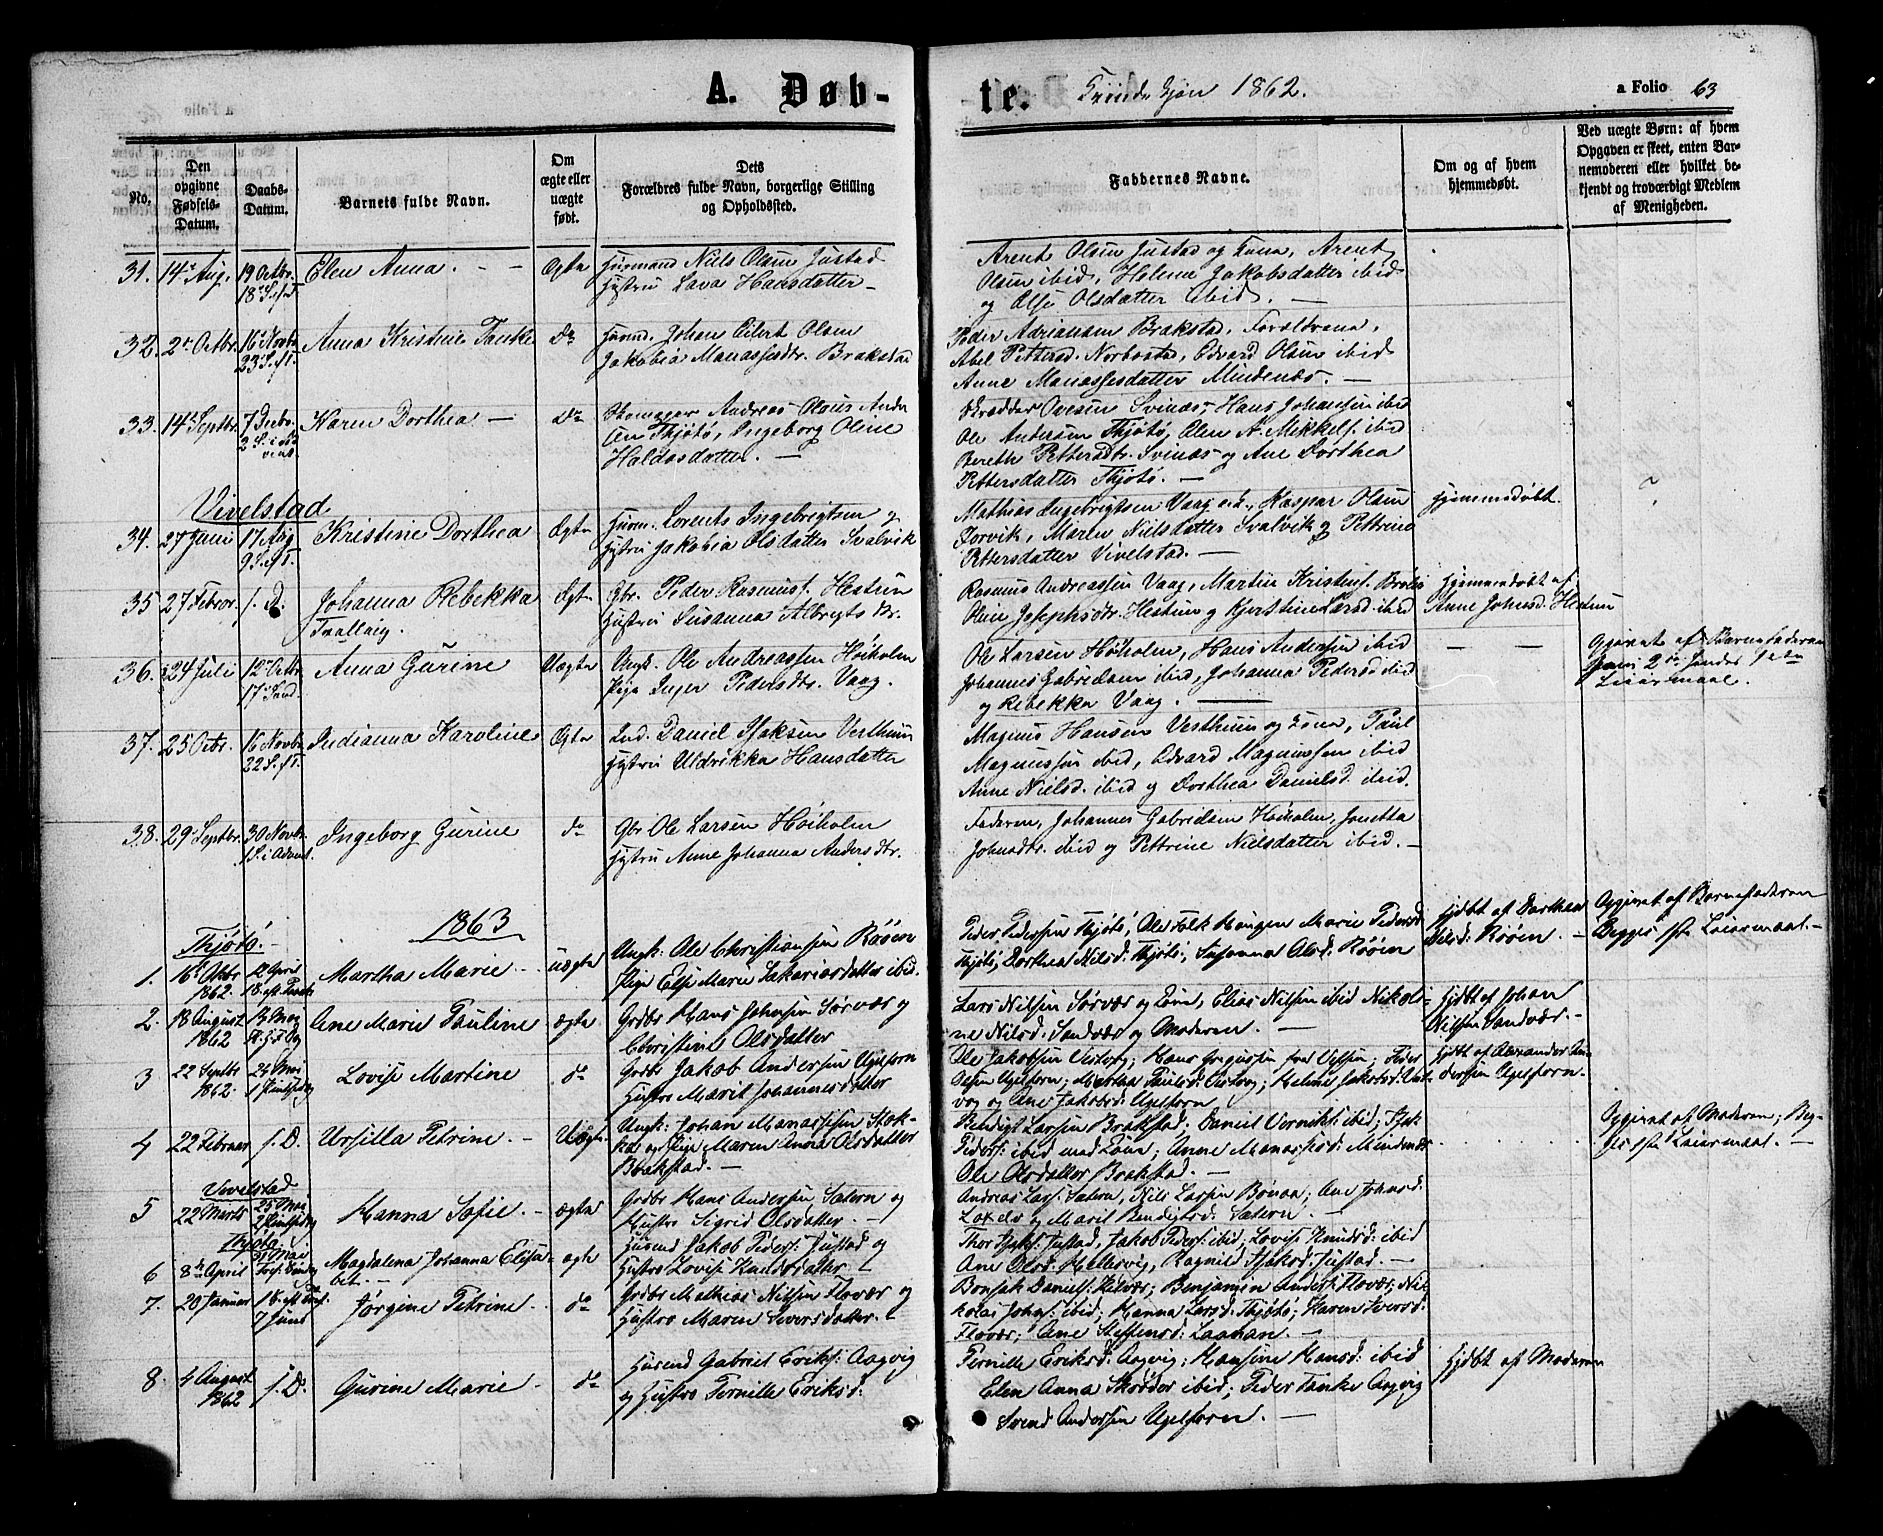 A. Døb-
te. Qvindekjøn 1862.
a Folio 63
No.
Den opgivne Fødsels-Datum.
Daabs-Datum.
Barnets fulde Navn.
Om ægte eller uægte født.
Dets Forældres fulde Navn, borgerlige Stilling og Opholdssted.
Faddernes Navne.
Om og af hvem hjemmedøbt.
Ved uægte Børn: af hvem Opgaven er skeet, enten Barnemoderen eller hvilket bekjendt og troværdigt Medlem af Menigheden.
31. 14 Aug. 19 Octbr. Elen Anna. - - Ægte Huusmand Niels Olsen Justad
Hustru Lava Hansdatter -
Arent Olsen Justad og Kone, Arent
Olsen ibid, Helene Jakobsdatter ibid
og Else Olsdatter ibid. -
32. 2 Octbr. 16 Novbr. Anna Kristine Tanke Do Huusm. Johan Eilert Olsen
23 S. e. T. Jakobia Manassesdtr. Brakstad
Peder Adriansen Brakstad, Forældrene,
Abel Pettersd. Norbostad, Edvard Olsen ibid
Anne Manassesdatter Mindenes. -
33. 14 Septbr. 7 Decbr. Karen Dorthea - Do Andreas Olaus Ander
sen Thjøtø, Ingeborg Oline
Haldosdatter. -
Skrædder Ovesen Svines, Hans Johansen ibid
Ole Andersen Thjøtø, Elen A. Mikkels. ibid
Bereth Pettersdtr. Svines og Ane Dorthea
Pettersdatter Thjøtø. -
Vivelstad
34. 27 Juni 17 Aug. Kristine Dorthea Ægte Huusm. Lorents Ingebrigtsen og
9 S. e. T. Hustru Jakobia Olsdatter Svalvik
Mathias Ingebrigtsen Vaag, Kaspar Olsen
Forvik, Maren Nielsdatter Svalvik og Pettrine
Pettersdatter Vivelstad. -
Hjemmedøbt.
35 27 Febr. s. D. Johanna Rebekka Ægte Gbr. Peder Rasmus. Hestun
Hustru Susanna Albregts dr.
Rasmus Andreassen Vaag, Martin Kristens.
Oline Josephsdtr. Hestun og Kjerstine Larsd. ibid
Hjemmedøbt af
Anne Johnsd. Hestun
36. 24 Juli 12 Octbr. Anna Gurine Uægte Ungk. Ole Andreassen Høiholm
Pige Inger Pedersdtr. Vaag.
Ole Larsen Høiholm, Hans Andersen ibid
Johannes Gabrielsen ibid, Johanna Pedersd. ibid
og Rebekka Vaag. -
Opgivet af Barnefaderen
Leiermaal.
37. 25 Octbr. 16 Novbr. Indianna Karoline Ægte Ind. Daniel Isaksen Vesthuun
22 S. e. T. Hustru Uldrikka Hansdatter
Magnus Hansen Vesthuun og Kone, Paul
Magnussen ibid, Edvard Magnussen ibid
Anne Nielsd. ibid og Dorthea Danielsd. ibid.
38. 29 Septbr. 30 Novbr. Ingeborg Gurine do Gbr. Ole Larsen Høiholm
1 S. i Advent. Hustru Anne Johanna Andersdtr.
Faderen, Johannes Gabrielsen Høiholm, Jonetta
Johnsdtr. ibid og Pettrine Nielsdatter ibid. -
1863
Thjøtø. -
1. 16 Oktbr 1862. 12 April Martha Marie - uægte Ungk: Ole Christiansen Røøen
Pige Else Marie Sakariasdatter ibid.
Peder Pedersen Thjøtø, Ole Falk Haugen Marie Pedersd:
Thjøtø, Dorthea Nilsd: Thjøtø, Susanna Olsd: Røøen
Hjdbt af Dorthea
Nilsd: Røøen. -
Opgivet af Barnefaderen
Begges 1ste Leiermaal. -
2. 18 August 1862 Ane Marie Pauline ægte Grdbr Hans Johnsen Sørvær og
Christine Olsdatter
Lars Nilsen Sørvær og Kone, Elias Nilsen ibid Nikoli-
ne Nilsd: Sandvær og Moderen. -
Hjdbt af Johan
Nilsen Sandvær. -
3 22 Septbr 1862. Lovise Martine do Grdbr Jakob Andersen Ugelforn
Hustro Marit Johannesdatter
vog og Ane Jakobsd: Ugelforn
Hjdbt af Alexander An-
dersen Ugelforn.
4 22 Februar s. D. Ursilla Petrine. - Uægte Ungk: Johan Manassesen Stok-
ka og Pige Maren Anne Olsdatter
Brakstad. -
Bendigt Larsen Brakstad. Daniel ibid; Isak
Peders: ibid med Kone; Anne Manassesd: Mindenæs
Ole Olsdatter Brakstad. -
Opgivet af Moderen; Beg-
ges 1ste Leiermaal. -
Vevelstad
5 22 Marts 25 Mai Hanna Sofie. - ægte Grdbr Hans Andersen Sætern og
2 Pintsedag Hustro Sigrid Olsdatter. -
Andreas Lars: Sætern, Nils Larsen Bønaa; Ane Johnsd:
og Marit Bendigtsd: Sætern. -
Thjøtø
6 8de April Magdalena Johanna Elisa-
bet. - ægte Husmd Jakob Peders: Justad og
Hustro Lovise Knudsdatter -
Thor Isaks: Justad, Jakob Peders: ibid; Lovise Knudsd: ibid
Ane Olsd: Hellesvig, Ragnild Isaksd: Justad. -
7. 20 Januar 7 Juni Jørgine Petrine. do Grdbr Mathias Nilsen Flovær og
Hustro Maren Iversdatter. -
Bonsak Daniels: ; Benjamin Anders: Flovær; Ni-
kolai Johns: ibid; Hanna Larsd: Thjøtø; Karen Iversd:
Flovær; Ane Steffensd: -
8. 4 August 1862 s. D. Gurine Marie - do Husmd Gabriel Eriks: Aagvig
og Hustro Pernille Eriksd:
Pernille Eriksd: Aagvig; Hansine Hansd: ibid
Elen Anna Skredder ibid; Peder Tanke Aagvig
Svend Andersen Ugelforn. -
Hjdbt af Moderen